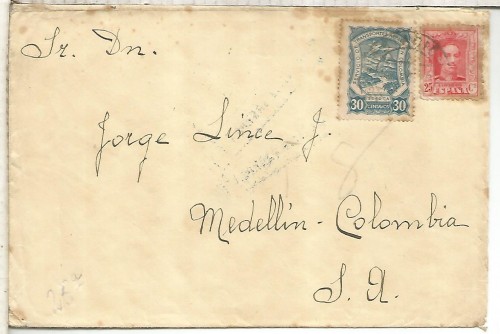 Sr. Dn.
Jorge Lince J.
Medellín-Colombia
S. A.
30 30
25
ESPAÑA